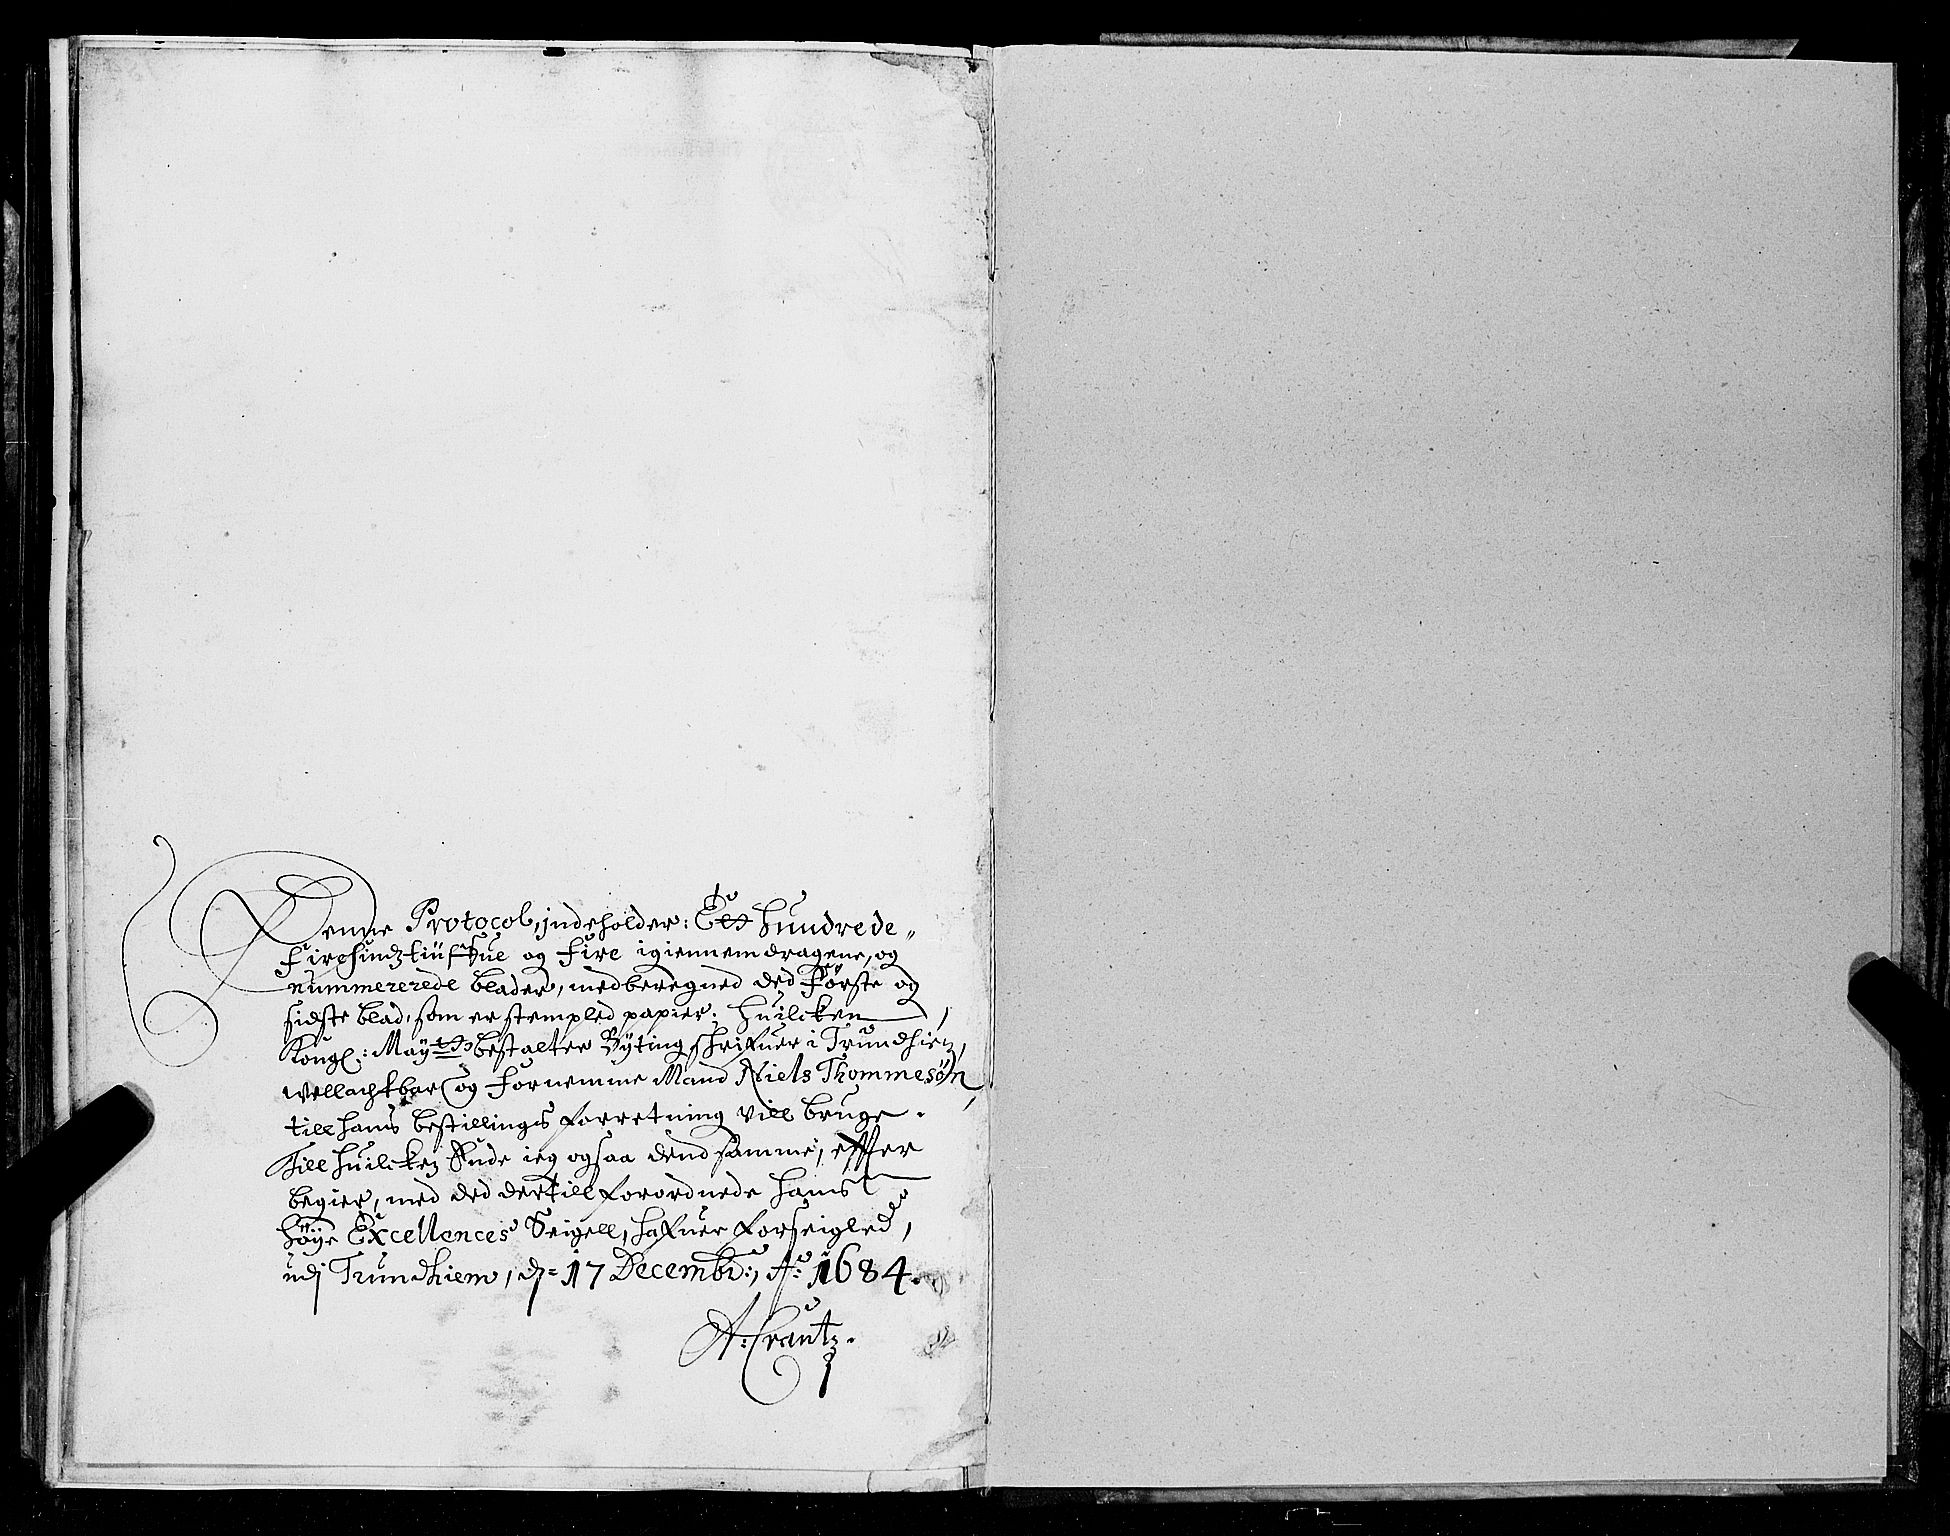 Denne Protocol, indeholder: Ett hundrede
Firesindztiufue og Fire igiennemdragene, og
nummererede blader, medberegned ded Første og
sidste blad, som er stempled papier. huilcken
Kongl: Mayts bestalter Byting schrifuer i Trundhiem,
Wellachtbar og Fornemme Mand Niels Thommesøn,
till hans bestillings forretning vill bruge.
Till huilcken Ende ieg ogsaa dend samme, effter
begier, med ded dertill forordnede hans
høye Excellences Seigell, hafuer forseigled,
udj Trundhiem, d. 17 Decembr:, Ao: 1684.
A: Crantz.